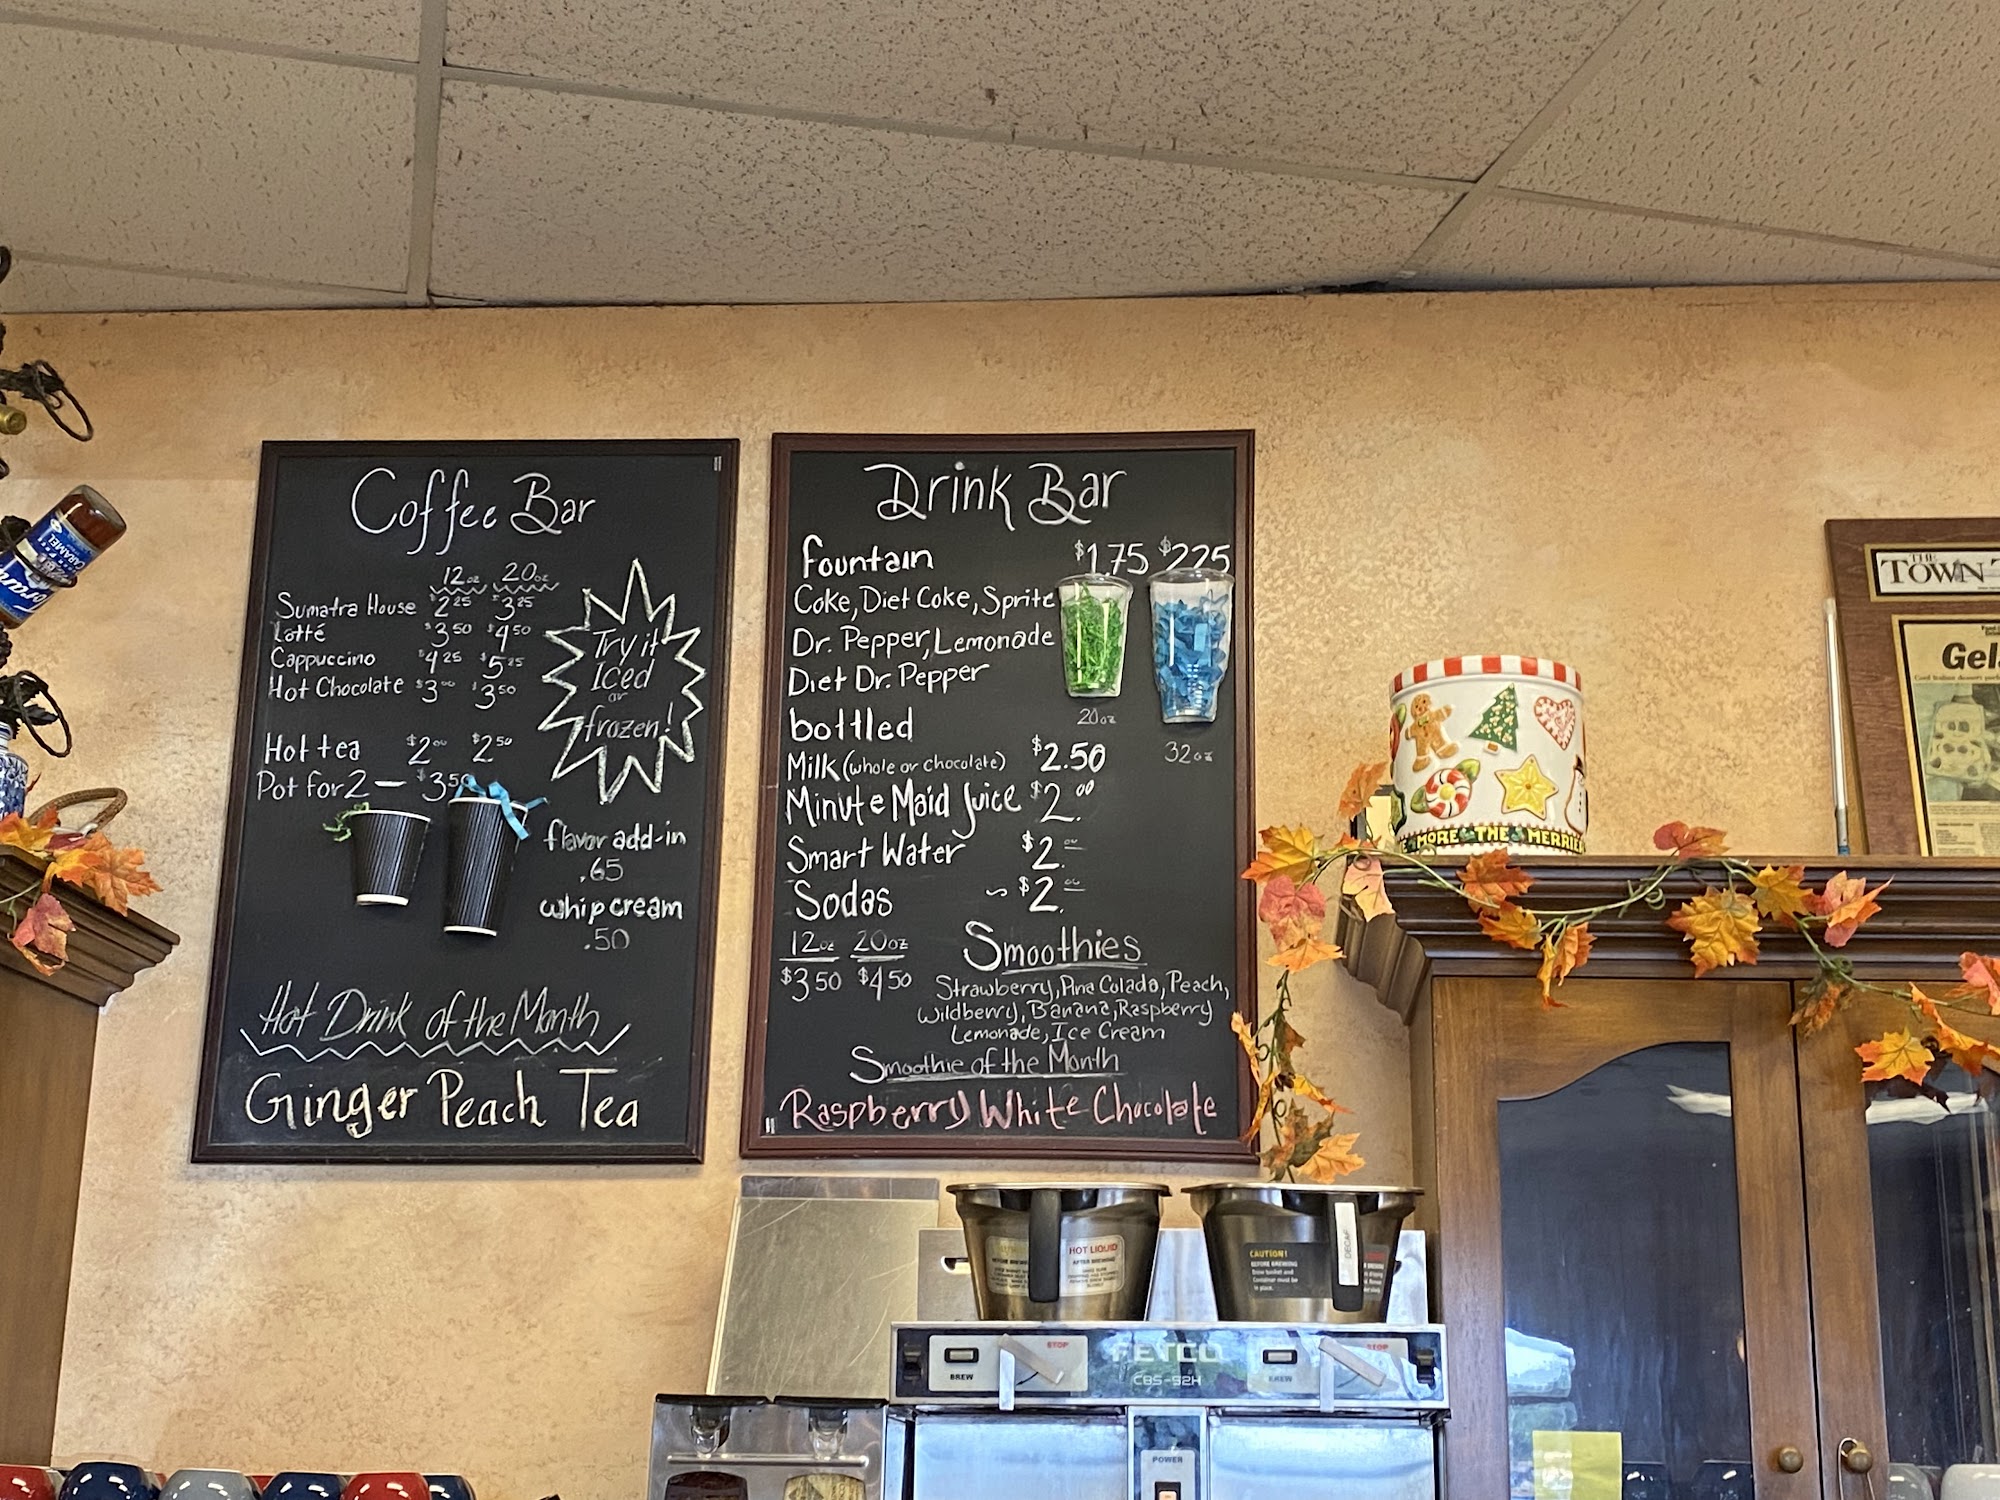 Coffee Bar
12oz 20oz
Sumatra House $2.25 $3.25
Latté $3.50 $4.50
Cappuccino $4.25 $5.25
Hot Chocolate $3.00 $3.50
Hot tea $2.00 $2.50
Pot for 2 — $3.50
Try it
Iced
or
frozen!
flavor add-in
.65
whip cream
.50
Hot Drink of the Month
Ginger Peach Tea
Drink Bar
fountain $1.75 $2.25
Coke, Diet Coke, Sprite
Dr. Pepper, Lemonade
Diet Dr. Pepper
20oz
32oz
bottled
Milk (whole or chocolate) $2.50
Minute Maid Juice $2.00
Smart Water $2.00
Sodas ~ $2.00
12oz 20oz
$3.50 $4.50
Smoothies
Strawberry, Pina Colada, Peach,
Wildberry, Banana, Raspberry
Lemonade, Ice Cream
Smoothie of the Month
Raspberry White Chocolate
CARAMEL
MORE THE MERRIE
THE
TOWN
Gel
HOT LIQUID
AFTER BREWING
CAUTION!
BEFORE BREWING
Brew basket and
Container must be
in place.
DECAF
STOP
BREW
FETCO
CBS-52H
STOP
BREW
POWER